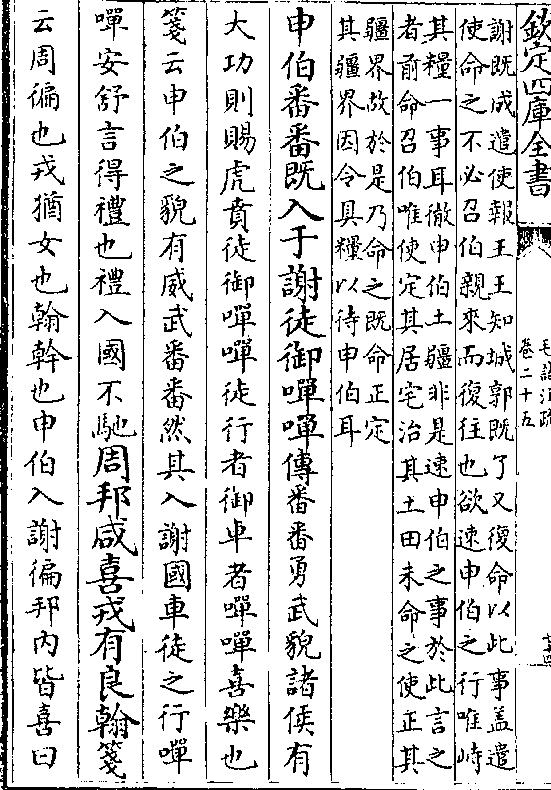 欽定四庫全書
毛詩注疏
卷二十五
謝既成遣使報王王知城郭既了又復命以此事蓋遣
使命之不必召伯親來而復往也欲速申伯之行唯峙
其糧一事耳徹申伯土疆非是速申伯之事於此言之
者前命召伯唯使定其居宅治其土田未命之使正其
疆界故於是乃命之既命正定
其疆界因令具糧以待申伯耳
申伯番番既入于謝徒御嘽嘽傳番番勇武貌諸侯有
大功則賜虎賁徒御嘽嘽徒行者御車者嘽嘽喜樂也
箋云申伯之貌有威武番番然其入謝國車徒之行嘽
嘽安舒言得禮也禮入國不馳周邦咸喜戎有良翰箋
云周徧也戎猶女也翰幹也申伯入謝徧邦內皆喜曰